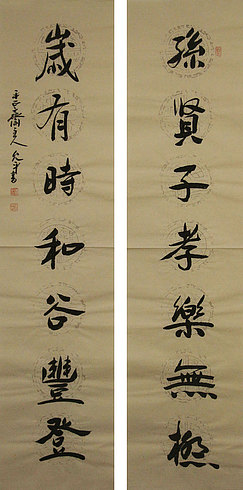 孫賢子孝樂無極
歲有時和谷豐登
齋主人